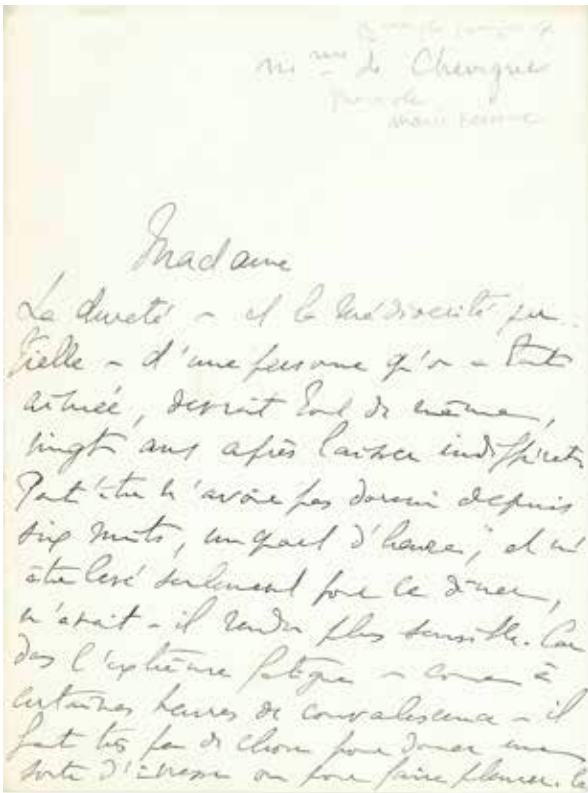 Mme de Chevigné
Madame
La dureté - et la médiocrité par-
tielle - d'une personne qu'on a tant
aimée, devrait tout de même,
vingt ans après laisser indifférent.
Peut'être n'avoir pas dormi depuis
six nuits, un quart d'heure, et m'
être levé seulement pour ce dîner,
m'avait-il rendu plus sensible. Car
dans l'extrême fatigue - comme à
certaines heures de convalescence - il
faut très peu de chose pour donner une
sorte d'ivresse ou pour faire pleurer.